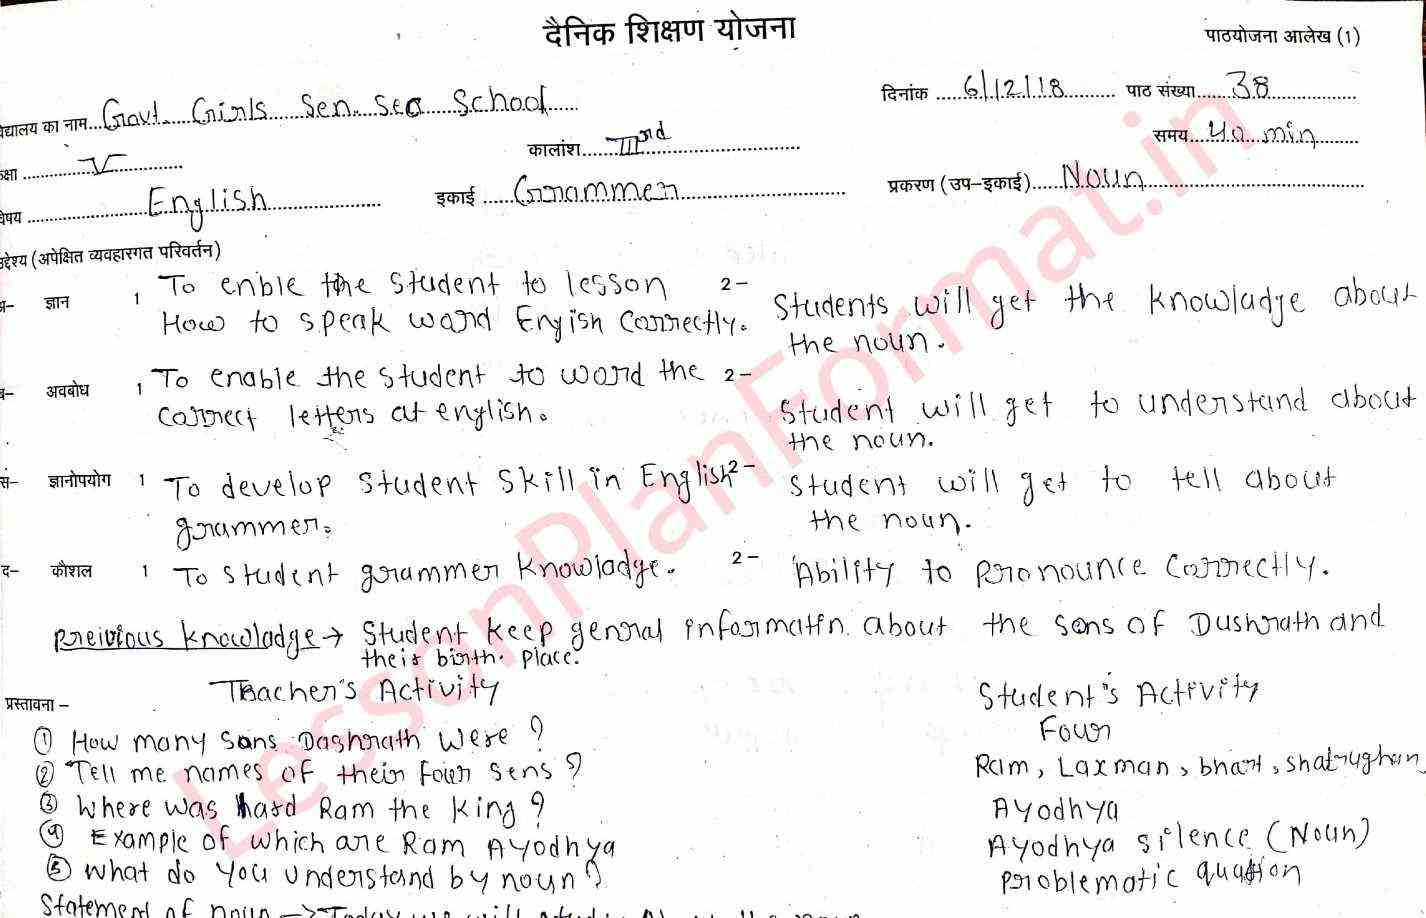 दैनिक शिक्षण योजना
पाठयोजना आलेख (1)
द्यालय का नाम...Govt. Girls Sen. Sec School......
दिनांक ....6/12/18.......... पाठ संख्या......38..................
क्षा ...............V.............
कालांश......IIIrd......................
समय....40 min..........
वेषय ..................English......................
इकाई ......Grammer...........................
प्रकरण (उप-इकाई).....Noun......................................
द्देश्य (अपेक्षित व्यवहारगत परिवर्तन)
ज्ञान 1 To enble the student to lesson
How to speak word Engish correctly.
2- Students will get the knowladge about
the noun.
अवबोध 1 To enable the student to word the
correct letters at english.
2- Student will get to understand about
the noun.
स- ज्ञानोपयोग 1 To develop student skill in English
grammer.
2- Student will get to tell about
the noun.
द- कौशल 1 To student grammer knowladge.
2- Ability to pronounce correctly.
Preivious knowladge → Student keep genral informatin. about the sons of Dushrath and
their birth. place.
प्रस्तावना –
Teacher's Activity
Student's Activity
① How many sons Dashrath were ?
Four
② Tell me names of their four sens ?
Ram, Laxman, bhart, shatrughan
③ Where was hard Ram the king ?
Ayodhya
④ Example of which are Ram Ayodhya
Ayodhya silence (Noun)
⑤ What do you understand by noun ?
problematic quation
Statement of noun → Today we will study about the noun
LessonPlanFormat.in